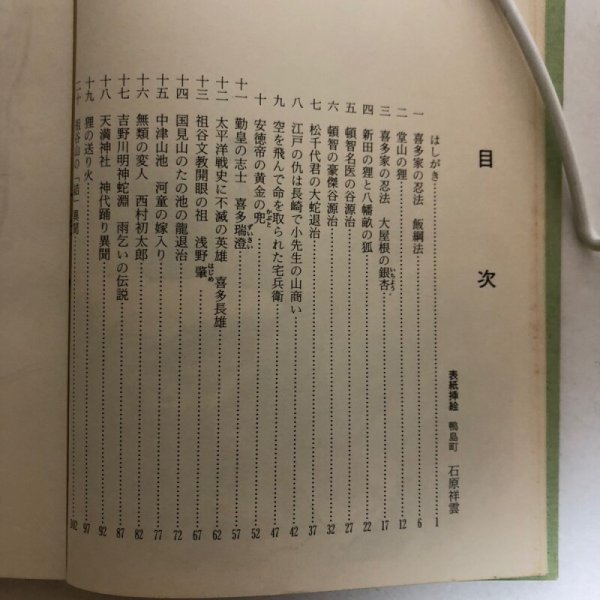 目次
表紙挿絵 鴨島町 石原祥雲
はしがき 1
一 喜多家の忍法 飯綱法 6
二 堂山の狸 12
三 喜多家の忍法 大屋根の銀杏 いちょう 17
四 新田の狸と八幡畝の狐 22
五 頓智名医の谷源治 27
六 頓智の豪傑谷源治 32
七 松千代君の大蛇退治 37
八 江戸の仇は長崎で小先生の山商い 42
九 空を飛んで命を取られた宅兵衛 47
十 安徳帝の黄金の兜 かぶと 52
十一 勤皇の志士 喜多瑞澄 ずきい 57
十二 太平洋戦史に不滅の英雄 喜多長雄 62
十三 祖谷文教開眼の祖 浅野肇 はじめ 67
十四 国見山のたの池の龍退治 72
十五 中津山池 河童の嫁入り 77
十六 無類の変人 西村初太郎 82
十七 吉野川明神蛇淵 雨乞いの伝説 87
十八 天満神社 神代踊り異聞 92
十九 狸の送り火 97
二十 祖谷山の「結」異聞 102